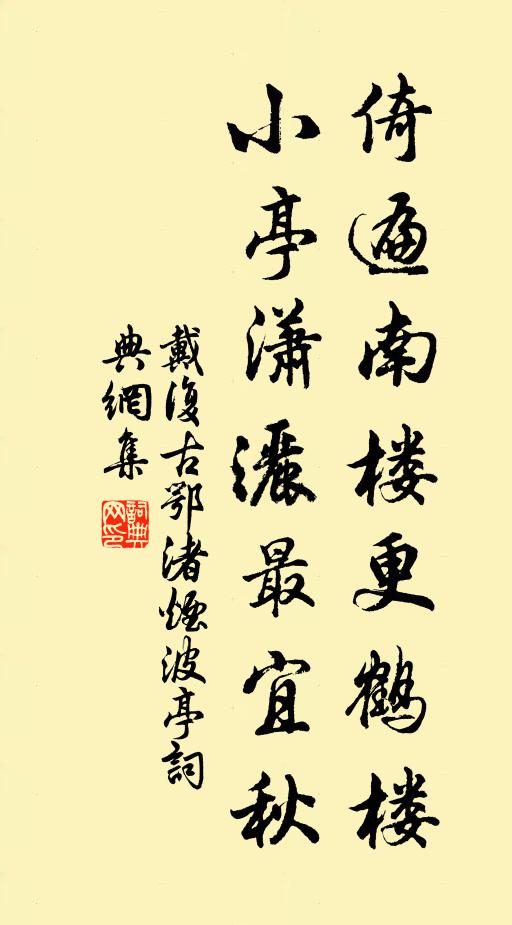 倚遍南楼更鹤楼
小亭潇灑最宜秋
戴復古鄂渚煙波亭詞
典網集
詞典網印